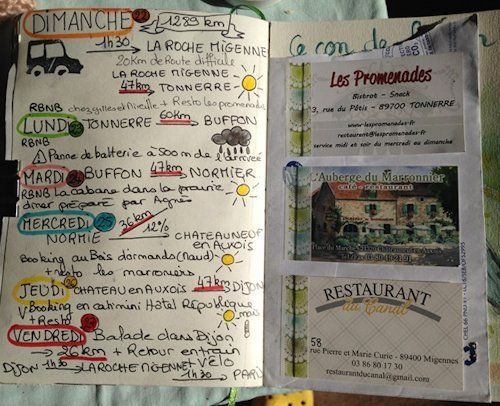 DIMANCHE 22 1289 km
1h30 → LA ROCHE MIGENNE
20km de Route difficile
LA ROCHE MIGENNE -
47km → TONNERRE
RBNB chez gilles et Mireille + Resto les promenades
LUNDI 23 TONNERRE 60km → BUFFON
RBNB
⚠ Panne de batterie à 500 m de l'arrivée
MARDI 24 BUFFON 47km → NORMIER
RBNB La cabane dans la prairie
dîner préparé par Agnès
MERCREDI 25 36km
12%
NORMIE CHATEAUNEUF
EN AUXOIS
Booking au Bois dormando (naud)
+ resto les maroniers
JEUDI CHATEAU EN AUXOIS 47km DIJON
V Booking en catimini Hôtel République
+ Resto mais
VENDREDI Balade dans Dijon
→ 26km + Retour en train
VÉLO
DIJON 1h30 → LA ROCHE MIGENNE 1h30 → PARIS
Les Promenades
Bistrot - Snack
3, rue du Pâtis - 89700 TONNERRE
www.lespromenades-fr
restaurant@lespromenades-fr
service midi et soir du mercredi au dimanche
L'Auberge du Marronnier
café - restaurant
Place du Marché 21320 Châteauneuf en Auxois
RESTAURANT
du Canal
58
rue Pierre et Marie Curie - 89400 Migennes
03 86 80 17 30
restaurantducanal@gmail.com